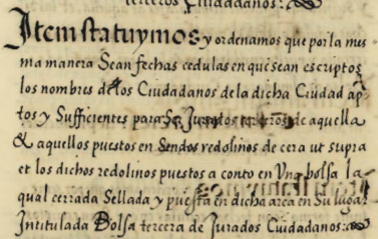 terceros Ciudadanos:
Item statuymos y ordenamos que por la mes
ma manera Sean fechas cedulas en que sean escriptos
los nombres de los Ciudadanos de la dicha Ciudad ap
tos y Sufficientes para Ser Jurados terceros de aquella
& aquellos puestos en Sendos redolinos de cera ut supra
et los dichos redolinos puestos a conto en Una bolsa la
qual cerrada Sellada y puesta en dicha arca en Su lugar
Intitulada Bolsa tercera de Jurados Ciudadanos: